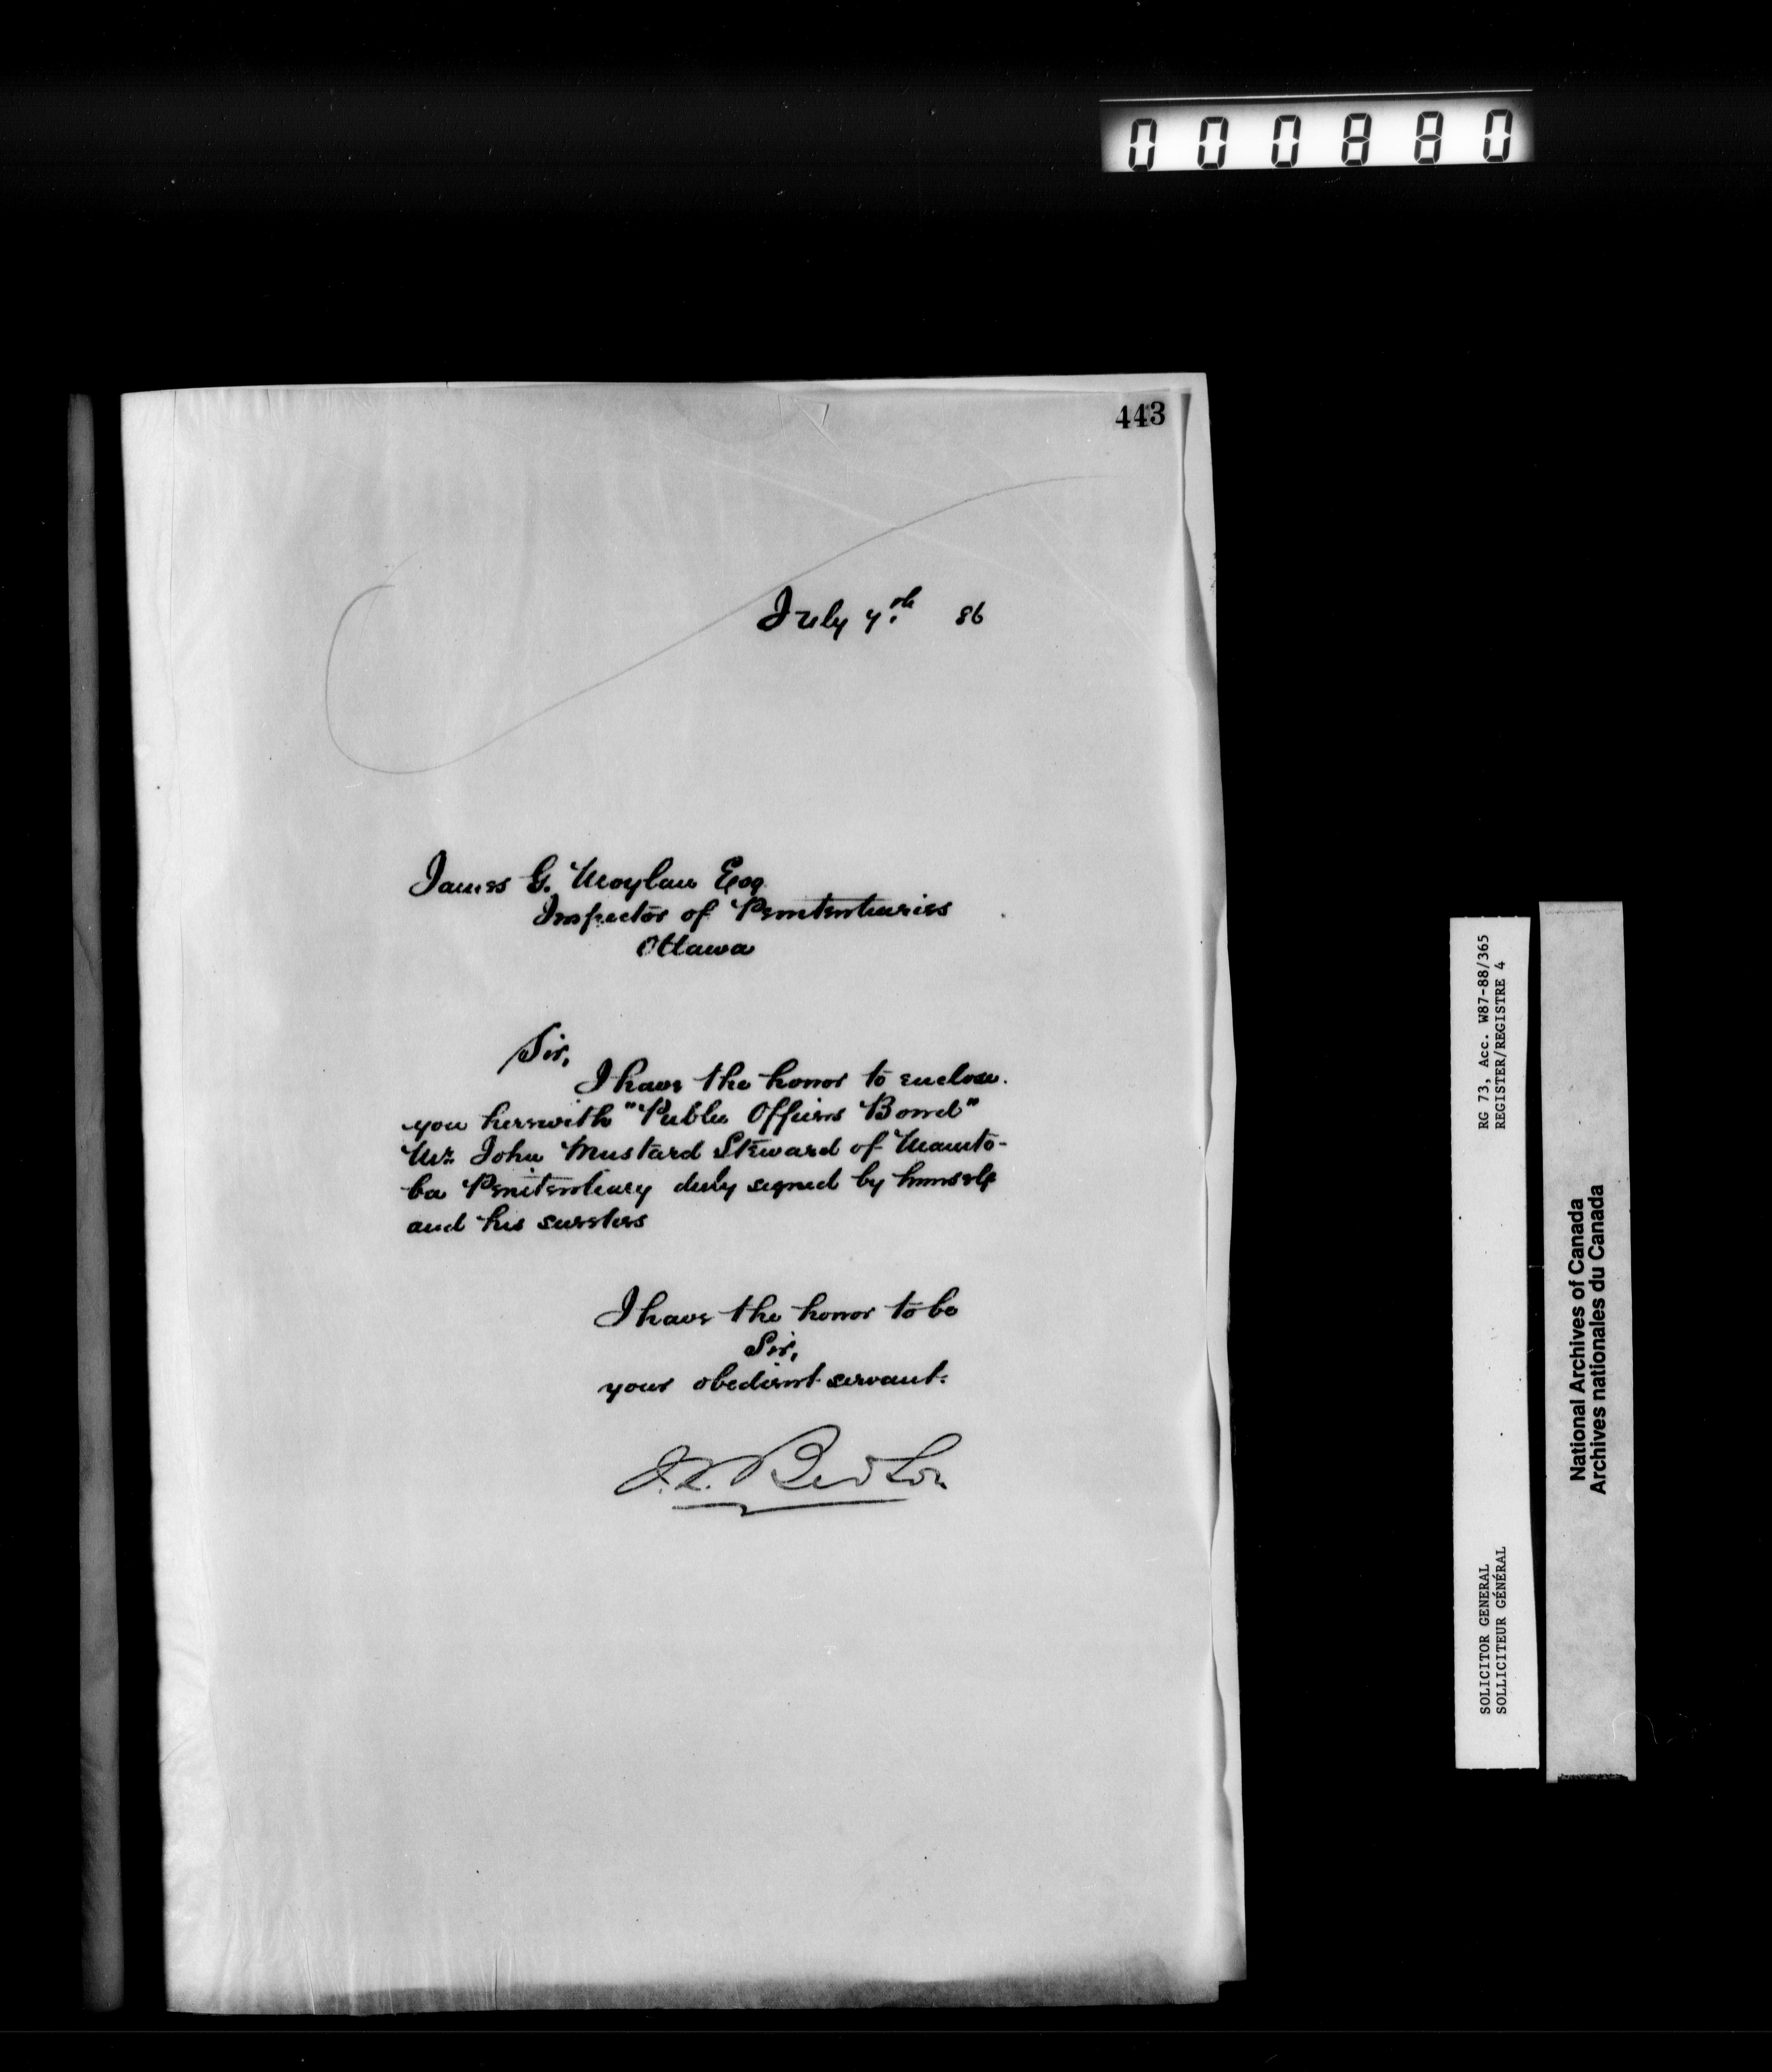 000880
443
July 7th 86
James G. Moylan Esq
Inspector of Penitentiaries
Ottawa
Sir,
I have the honor to enclose
you herewith "Public Officers Bond"
Mr. John Mustard Steward of Manito-
ba Penitentiary duly signed by himself
and his sureties
I have the honor to be
Sir,
your obedient servant.
S. L. Bedson
RG 73, Acc. W87-88/365
REGISTER/REGISTRE 4
SOLICITOR GENERAL
SOLLICITEUR GÉNÉRAL
National Archives of Canada
Archives nationales du Canada